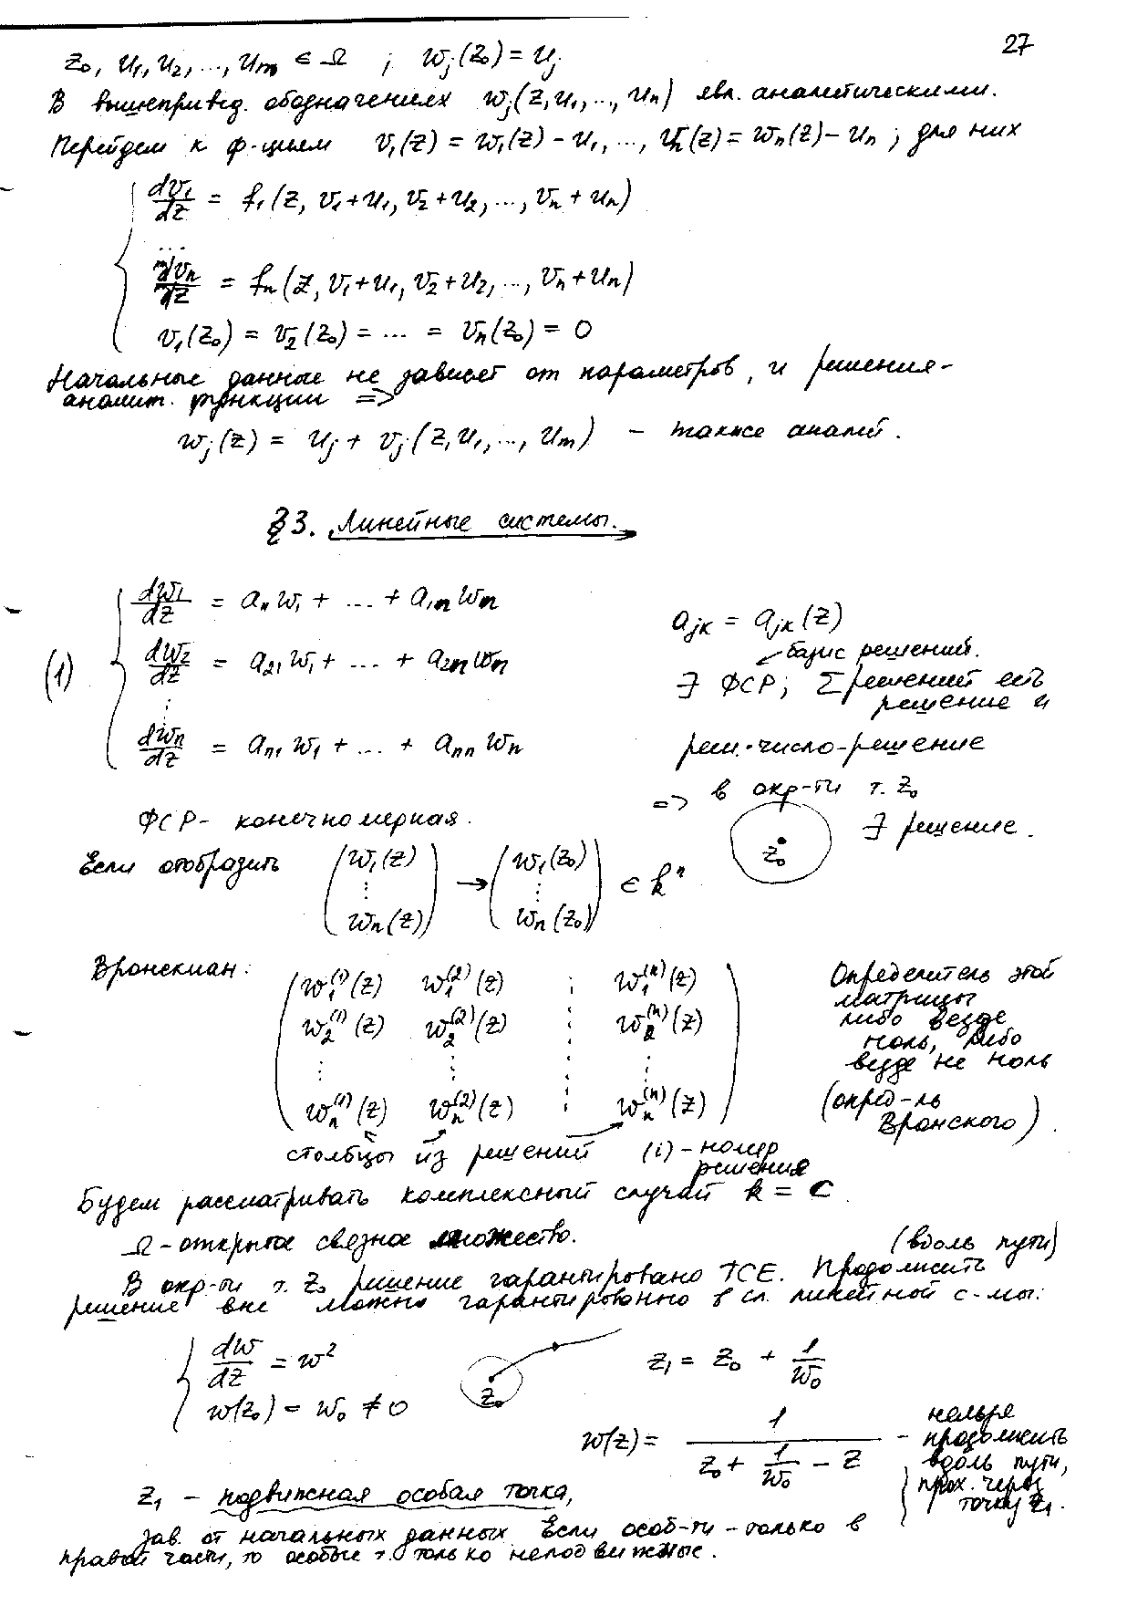 27
z₀, u₁, u₂, ..., uₘ ∈ Ω ; wⱼ(z₀) = uⱼ
В вышепривед. обозначениях wⱼ(z, u₁, ..., uₙ) явл. аналитическими.
Перейдем к ф-циям v₁(z) = w₁(z) − u₁, ..., vₙ(z) = wₙ(z) − uₙ ; для них
dv₁/dz = f₁(z, v₁+u₁, v₂+u₂, ..., vₙ+uₙ)
...
dvₙ/dz = fₙ(z, v₁+u₁, v₂+u₂, ..., vₙ+uₙ)
v₁(z₀) = v₂(z₀) = ... = vₙ(z₀) = 0
Начальные данные не зависят от параметров, и решения-
аналит. функции =>
wⱼ(z) = uⱼ + vⱼ(z, u₁, ..., uₘ) − также аналит.
§3. Линейные системы.
(1)
dw₁/dz = a₁₁w₁ + ... + a₁ₙwₙ
dw₂/dz = a₂₁w₁ + ... + a₂ₙwₙ
⋮
dwₙ/dz = aₙ₁w₁ + ... + aₙₙwₙ
aⱼₖ = aⱼₖ(z)
базис решений.
∃ ФСР; Σ решений есть
решение и
реш.·число-решение
=> в окр-ти т. z₀
∃ решение.
z₀
ФСР- конечномерная.
Если отобразить (w₁(z) ⋮ wₙ(z)) → (w₁(z₀) ⋮ wₙ(z₀)) ∈ kⁿ
Вронскиан:
w₁⁽¹⁾(z) w₁⁽²⁾(z) ⋮ w₁⁽ⁿ⁾(z)
w₂⁽¹⁾(z) w₂⁽²⁾(z) ⋮ w₂⁽ⁿ⁾(z)
⋮ ⋮ ⋮ ⋮
wₙ⁽¹⁾(z) wₙ⁽²⁾(z) ⋮ wₙ⁽ⁿ⁾(z)
Определитель этой
матрицы
либо везде
ноль, либо
везде не ноль
(опред-ль
Вронского).
столбцы из решений (i) − номер
решения
Будем рассматривать комплексный случай k = C
Ω - открытое связное множество.
(вдоль пути)
В окр-ти т. z₀ решение гарантировано ТСЕ. Продолжить
решение вне можно гарантированно в сл. линейной с-мы:
dw/dz = w²
w(z₀) = w₀ ≠ 0
z₀
z₁ = z₀ + 1/w₀
w(z) = 1/(z₀ + 1/w₀ − z) −
нельзя
продолжить
вдоль пути,
прох. через
точку z₁.
z₁ − подвижная особая точка,
зав. от начальных данных Если особ-ти - только в
правой части, то особые т. только неподвижные.